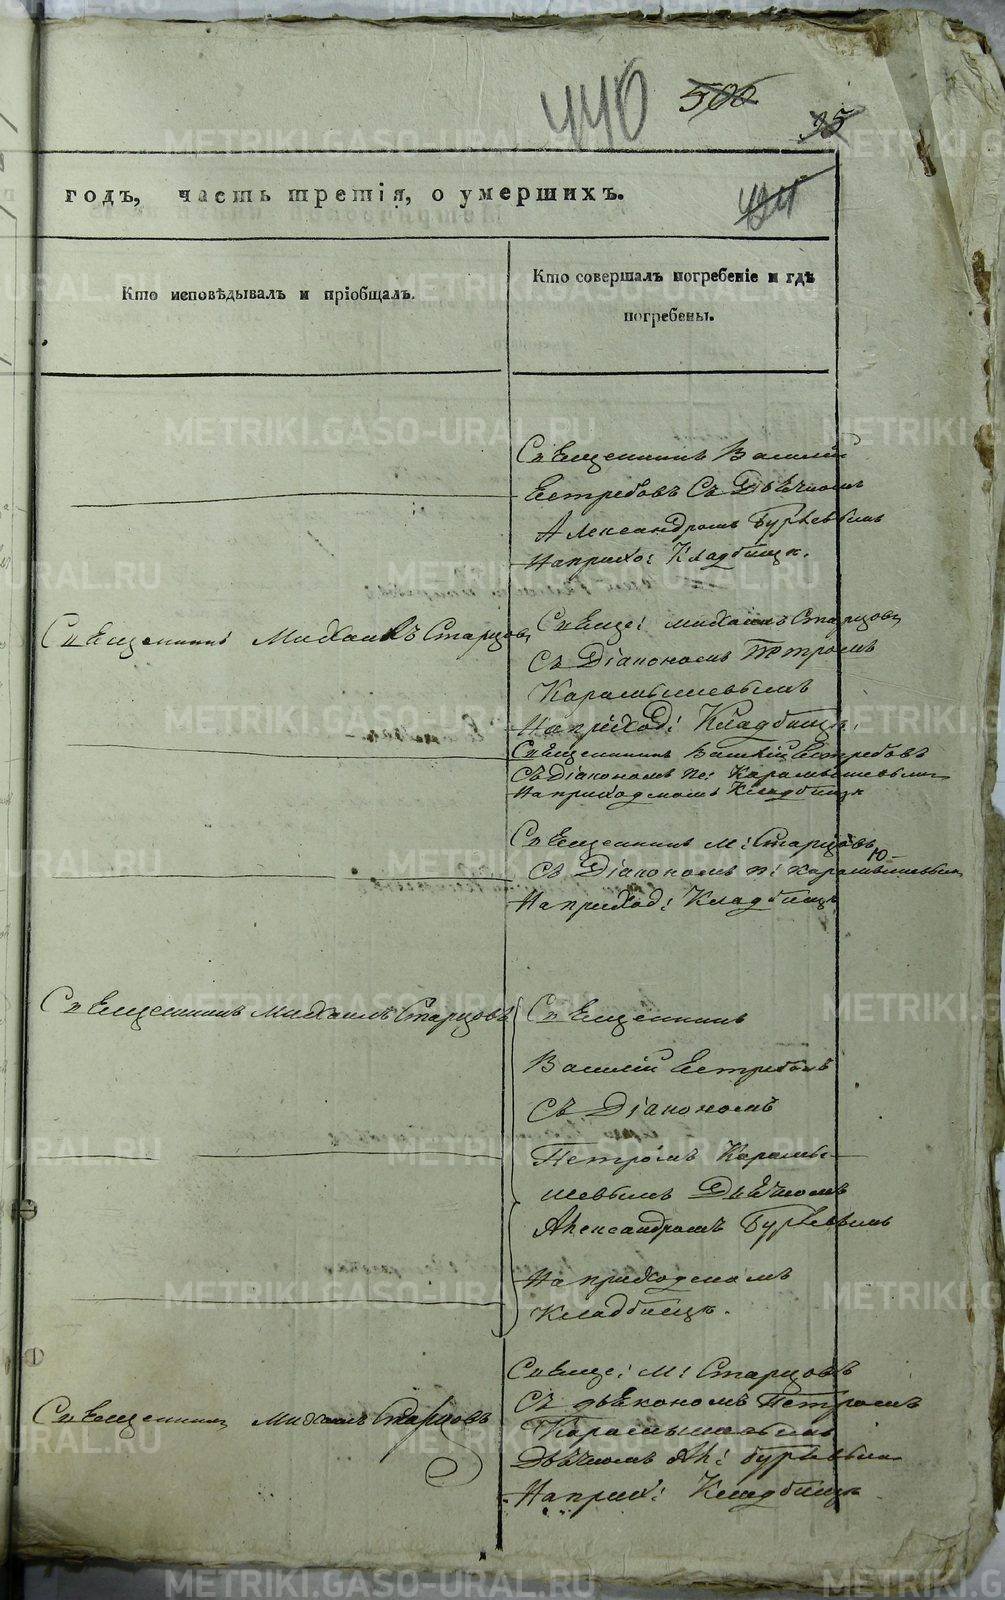 440 500
35
годъ, часть третія, о умершихъ.
424
Кто исповѣдывалъ и пріобщалъ.
Кто совершалъ погребеніе и гдѣ
погребены.
Священникъ Василій
Естребовъ Съ Дьѣчкомъ
Александромъ Бурѣевымъ
На прихо: Кладбищѣ.
Священникъ Михаилъ Старцовъ
Свяще: михаилъ Старцовъ
Съ Діакономъ Петромъ
Карамышевымъ
На приход: Кладбищѣ.
Священникъ Василій Естребовъ
Съ Діакономъ Пе: Карамышевымъ
На приходскомъ Кладбищѣ
Священникъ М: Старцовъ
Съ Діакономъ П: Карамышевым
На приход: Кладбищѣ
Священникъ Михаилъ Старцовъ
Священникъ
Василій Естребовъ
Съ Діакономъ
Петромъ Карамы-
шевымъ Дьѣчкомъ
Александромъ Бурѣевымъ
На приходскомъ
Кладбищѣ.
Священникъ Михаилъ Старцовъ
Свяще: М: Старцовъ
Съ дьѣкономъ Петромъ
Карамышевымъ
Дьѣчкомъ Ал: бурѣевым
На прих: Кладбищѣ
METRIKI.GASO-URAL.RU